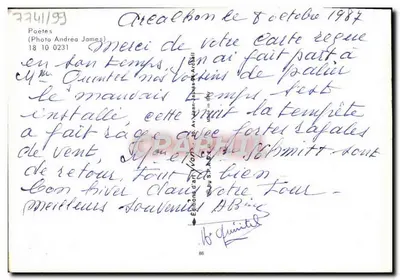 7741/99
Arcachon le 8 octobre 1987
Poètes
(Photo Andrea Jomes)
18 10 0231
Merci de votre carte reçue
en son temps, j'en ai fait part à
Mme Quintel nos voisins de palier
le mauvais temps s'est
installé, cette nuit la tempête
a fait rage avec fortes rafales
de vent, Schmitt sont
de retour, tout va bien
bon hiver dans votre tour -
meilleurs souvenirs
CPRAMA